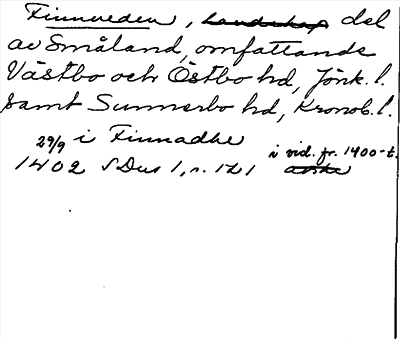 Finnveden, landskap del
av Småland, omfattande
Västbo och Östbo hd, Jönk. l.
samt Sunnerbo hd, Kronob. l.
29/9 i Finnadhe i vid. fr. 1400-t.
1402 SDns 1, s. 121